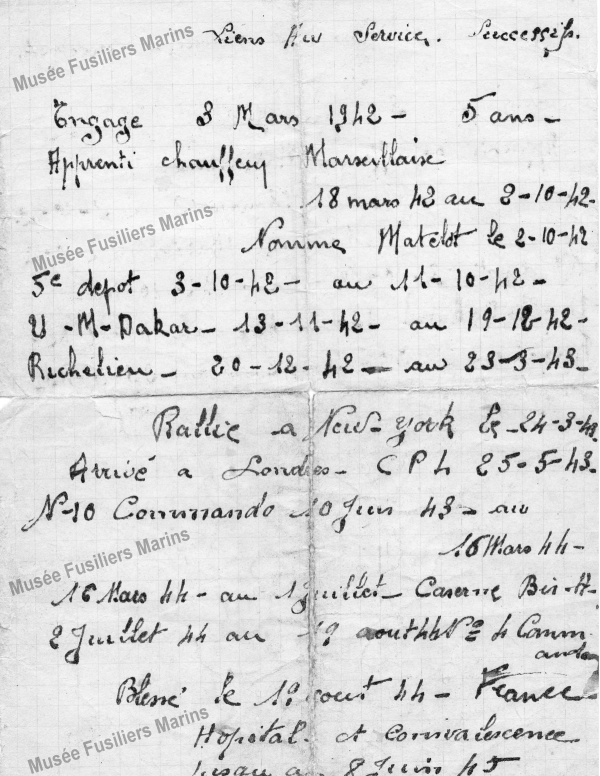 Liens Au Service. Successifs.
Musée Fusiliers Marins
Engage 3 Mars 1942 - 5 ans -
Apprenti chauffeur Marseillaise
18 mars 42 au 2-10-42-
Musée Fusiliers Marins
Nomme Matelot le 2-10-42
5e depot 3-10-42- au 11-10-42-
U-M-Dakar- 13-11-42- au 19-12-42-
Richelieu- 20-12-42- au 23-3-43-
Rallie a New-York le 24-3-43
Arrivé a Londres- C P L 25-5-43-
N-10 Commando 10 Juin 43- au
16 Mars 44-
Musée Fusiliers Marins
16 Mars 44- au 1 Juillet- Caserne Bir-H-
2 Juillet 44 au 19 aout 44 No 4 Comm
ando
Blessé le 19 aout 44- France
Musée Fusiliers Marins
Hopital- et Convalescence
Jusqu au 8 Juin 45